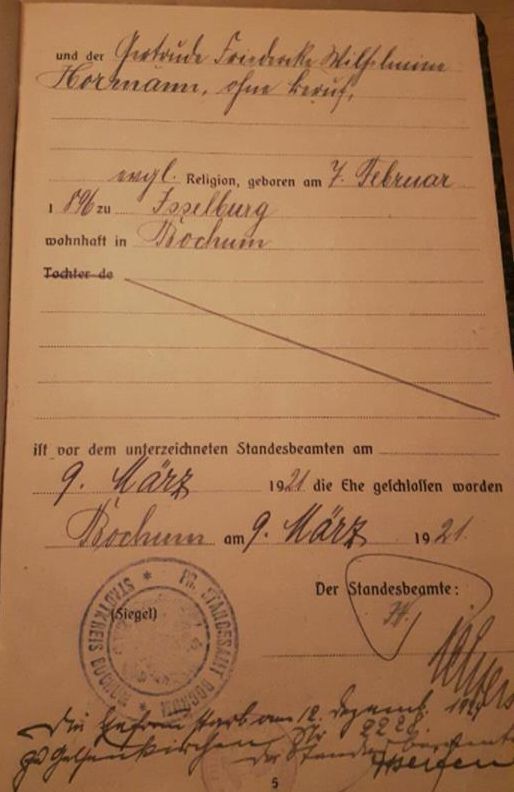 und der Gertrude Friedericke Wilhelmine
Hormann, ohne Beruf,
evgl. Religion, geboren am 7. Februar
1896 zu Isselburg
wohnhaft in Bochum
Tochter de
ist vor dem unterzeichneten Standesbeamten am
9. März 1921 die Ehe geschlossen worden
Bochum am 9. März 1921.
Der Standesbeamte:
(Siegel)
PR. STANDESAMT BOCHUM
STADTKREIS BOCHUM
Die Ehefrau starb am 12. Dezemb.
zu Gelsenkirchen Nr. 2228.
der Standesbeamte
5